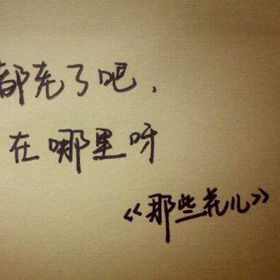 都老了吧，
在哪里呀
《那些花儿》